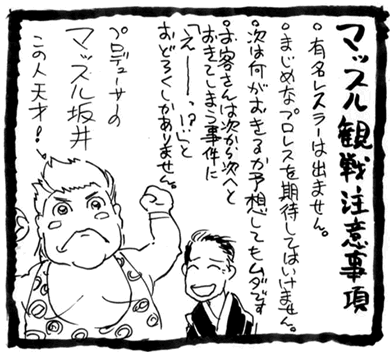 マッスル観戦注意事項
•有名レスラーは出ません。
•まじめなプロレスを期待してはいけません。
•次は何がおきるか予想してもムダです
•お客さんは次から次へと
おきてしまう事件に
「えーーっ!?」と
おどろくしかありません。
プロデューサーの
マッスル坂井
この人天才!